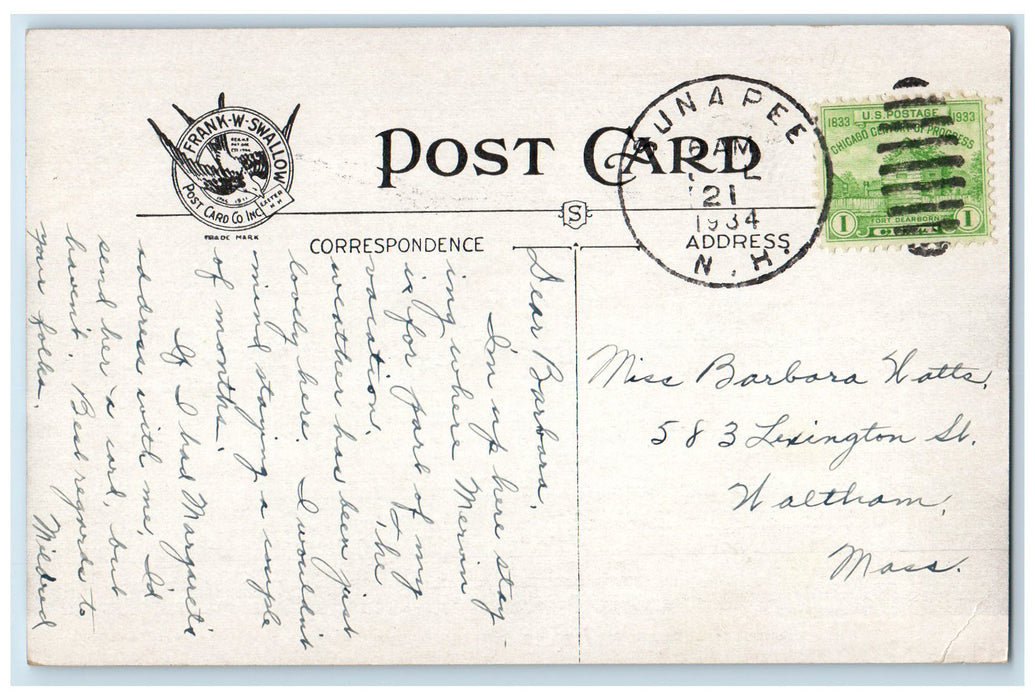 FRANK·W·SWALLOW
POST CARD CO INC.
EXETER
N.H.
TRADE MARK
POST CARD
S
CORRESPONDENCE
ADDRESS
SUNAPEE
AM
21
1934
N.H.
1833 U.S. POSTAGE 1933
CHICAGO CENTURY OF PROGRESS
FORT DEARBORN
1 1
Dear Barbara,
I'm up here stay-
ing where Mervin
is for part of my
vacation. The
weather has been just
lovely here. I wouldn't
mind staying a couple
of months.
If I had Margaret's
address with me, I'd
send her a card, but
haven't. Best regards to
your folks.
Mildred
Miss Barbara Watts,
583 Lexington St.
Waltham,
Mass.